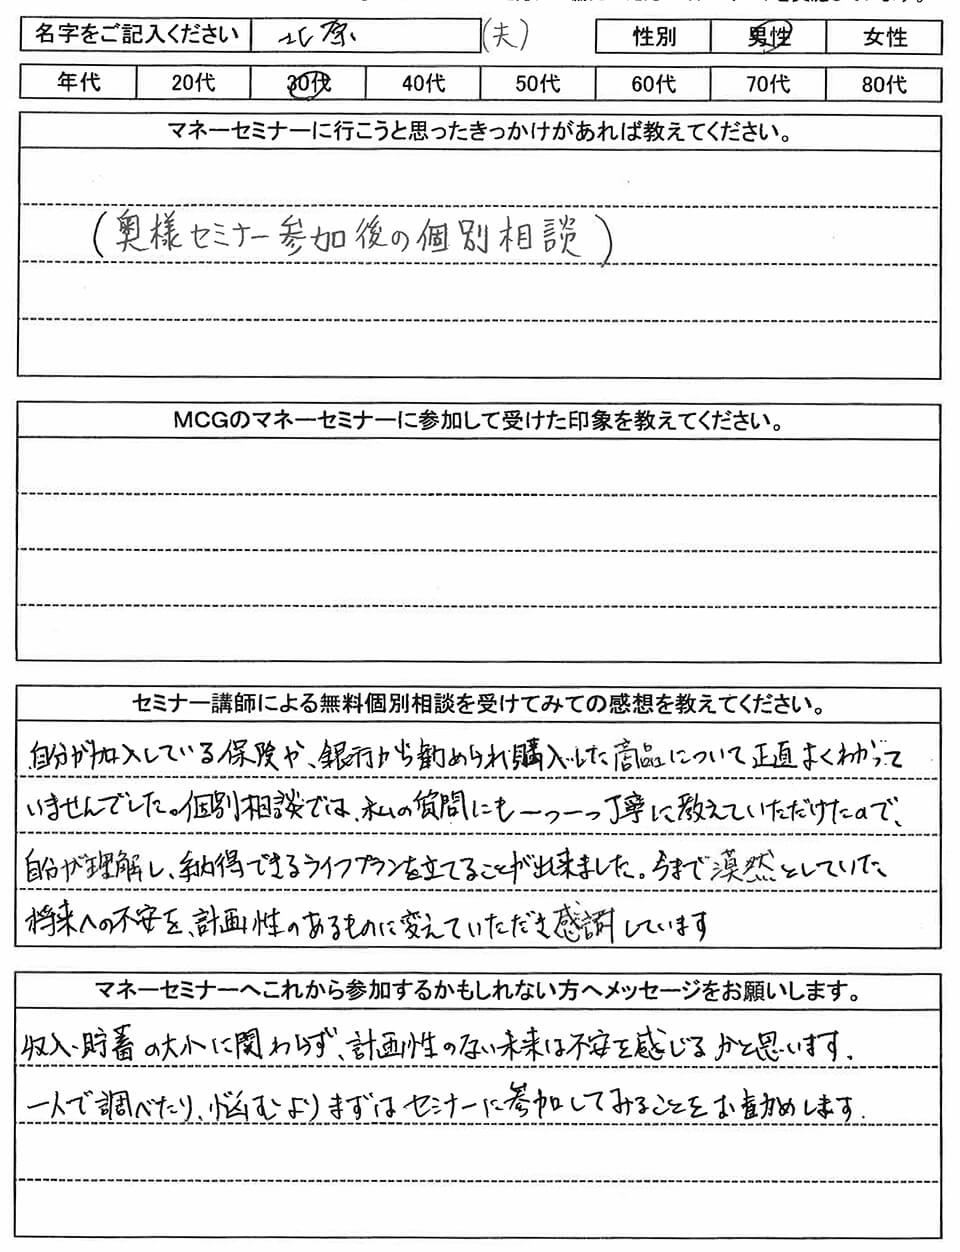 名字をご記入ください 北原 (夫) 性別 男性 女性
年代 20代 30代 40代 50代 60代 70代 80代
マネーセミナーに行こうと思ったきっかけがあれば教えてください。
(奥様セミナー参加後の個別相談)
MCGのマネーセミナーに参加して受けた印象を教えてください。
セミナー講師による無料個別相談を受けてみての感想を教えてください。
自分が加入している保険や、銀行から勧められ購入した商品について正直よくわかって
いませんでした。個別相談では、私の質問にも一つ一つ丁寧に教えていただけたので、
自分が理解し、納得できるライフプランを立てることが出来ました。今まで漠然としていた
将来への不安を、計画性のあるものに変えていただき感謝しています
マネーセミナーへこれから参加するかもしれない方へメッセージをお願いします。
収入・貯蓄の大小に関わらず、計画性のない未来は不安を感じるかと思います。
一人で調べたり、悩むよりまずはセミナーに参加してみることをお勧めします。